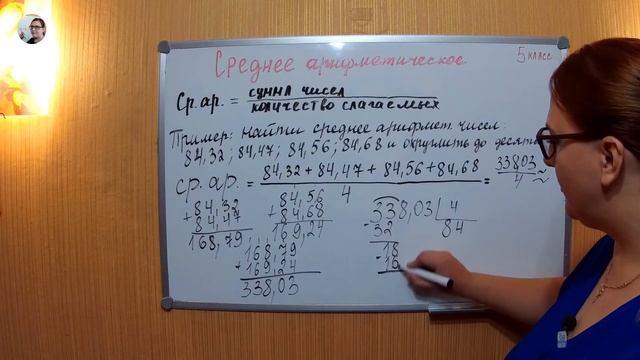 Среднее арифметическое
5 класс
Ср.ар. = сумма чисел
количество слагаемых
Пример: Найти среднее арифмет. чисел:
84,32; 84,47; 84,56; 84,68 и округлить до десят
ср.ар. = 84,32 + 84,47 + 84,56 + 84,68 = 33803 ≈
4 4
84,32
+ 84,47
168,79
84,56
+ 84,68
169,24
168,79
+ 169,24
338,03
338,03 4
- 32 84
18
- 16